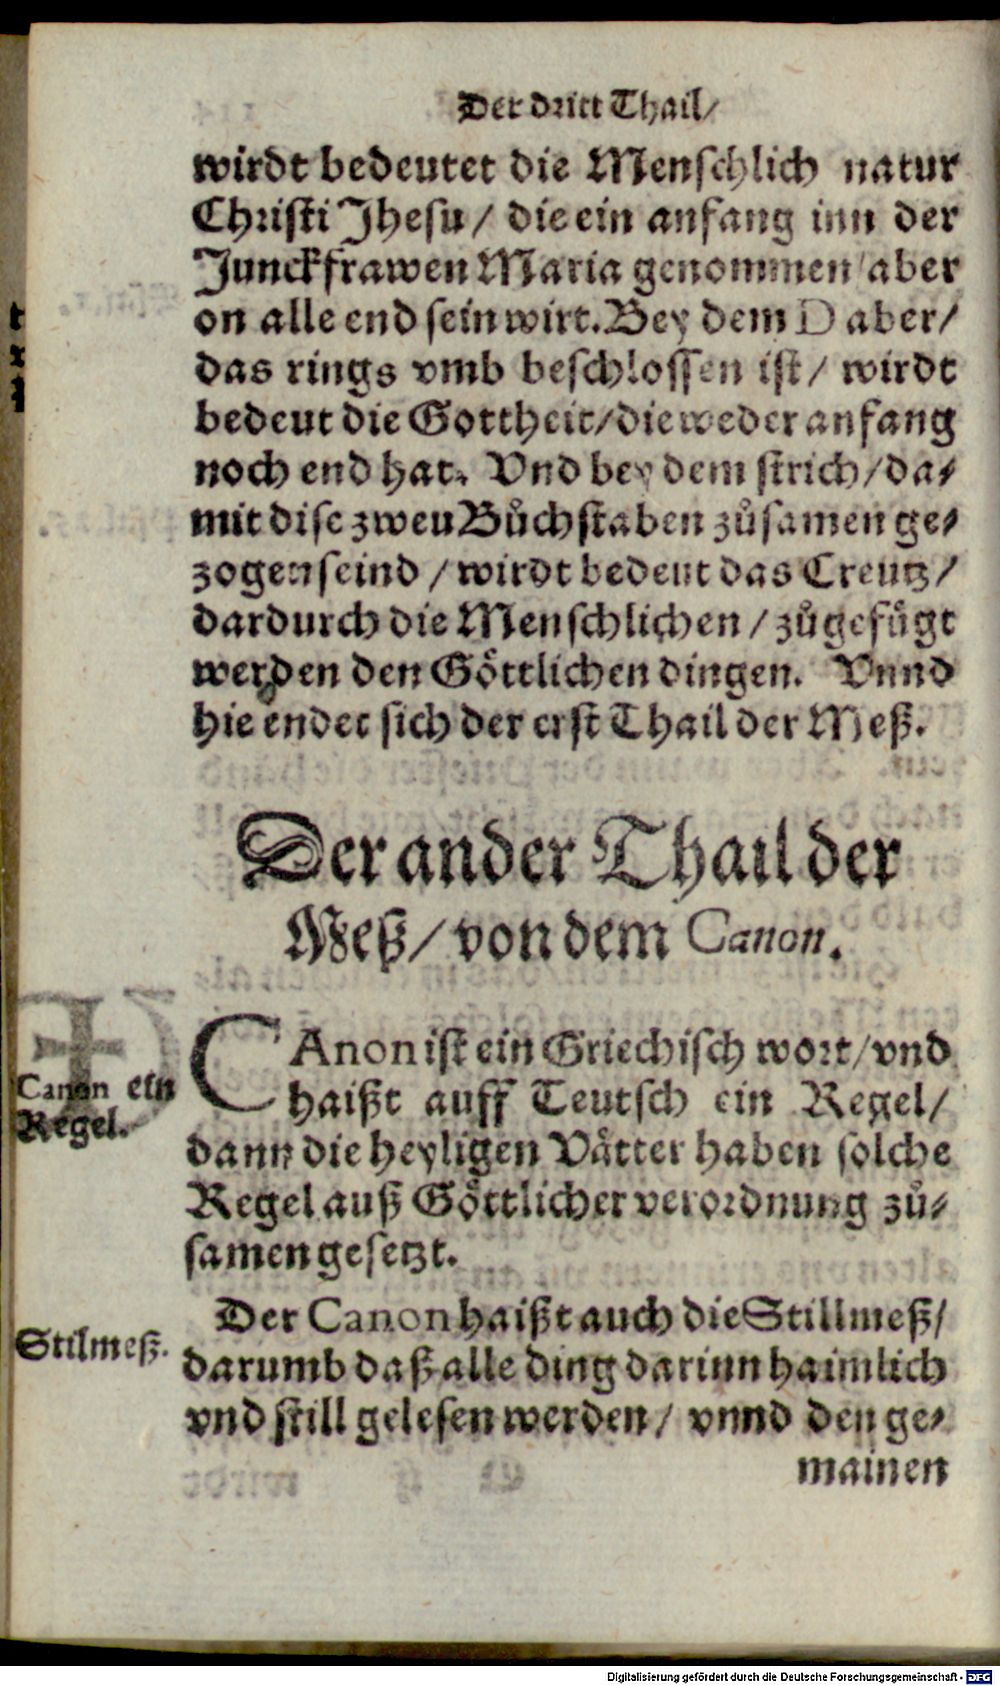 Der dritt Thail/
wirdt bedeutet die Menschlich natur
Christi Jhesu / die ein anfang inn der
Junckfrawen Maria genommen / aber
on alle end sein wirt. Bey dem D aber/
das rings vmb beschlossen ist / wirdt
bedeut die Gottheit/die weder anfang
noch end hat. Vnd bey dem strich/da⸗
mit dise zween Bůchstaben zůsamen ge⸗
zogen seind / wirdt bedeut das Creutz/
dardurch die Menschlichen / zůgefůgt
werden den Göttlichen dingen. Vnnd
hie endet sich der erst Thail der Meß.
Der ander Thail der
Meß/ von dem Canon.
Canon ein
Regel.
CAnon ist ein Griechisch wort/vnd
haißt auff Teutsch ein Regel/
dann die heyligen Vätter haben solche
Regel auß Göttlicher verordnung zů⸗
samen gesetzt.
Stilmeß.
Der Canon haißt auch die Stillmeß/
darumb daß alle ding darinn haimlich
vnd still gelesen werden/ vnnd den ge⸗
mainen
Digitalisierung gefördert durch die Deutsche Forschungsgemeinschaft - DFG